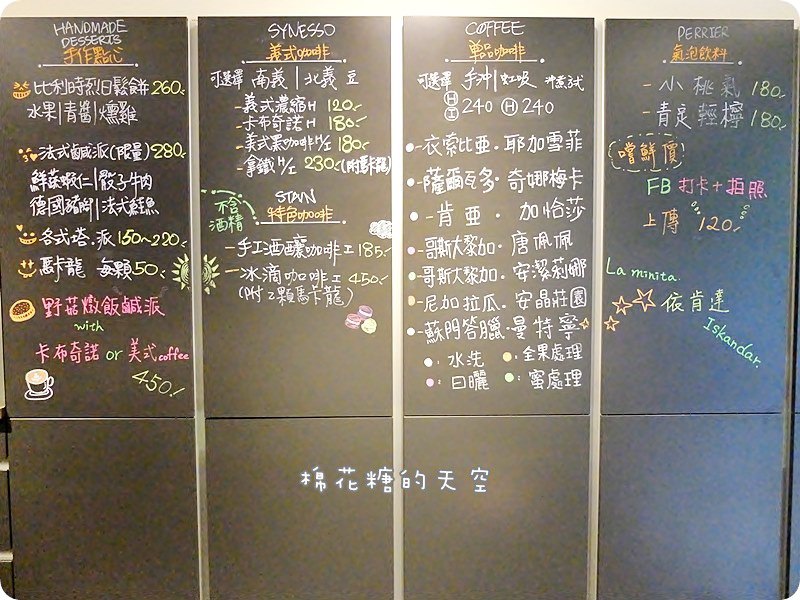 HANDMADE
DESSERTS
手作點心
比利時烈日鬆餅 260.
水果|青醬|燻雞
法式鹹派(限量) 280.
鮮蔬蝦仁|骰子牛肉
德國豬腳|法式鮭魚
各式塔.派 150~220.
馬卡龍 每顆50.
野菇燉飯鹹派
with
卡布奇諾 or 美式coffee
450.
SYNESSO
義式咖啡
可選擇 南義|北義 豆
-義式濃縮H 120.
-卡布奇諾H 180.
-美式黑咖啡H/I 180.
-拿鐵H/I 230.(附馬卡龍)
不含
酒精
STAIN
特色咖啡
-手工酒釀咖啡I 185.
-冰滴咖啡I 450.
(附2顆馬卡龍)
COFFEE
單品咖啡
可選擇 手沖|虹吸 沖煮方式
H
I 240 H 240
-衣索比亞.耶加雪菲
-薩爾瓦多.奇娜梅卡
-肯亞.加恰莎
-哥斯大黎加.唐佩佩
-哥斯大黎加.安潔莉娜
-尼加拉瓜.安晶莊園
-蘇門答臘.曼特寧
:水洗 :全果處理
:日曬 :蜜處理
PERRIER
氣泡飲料
-小桃氣 180.
-青定輕檸 180.
嚐鮮價
FB打卡+拍照
上傳 120.
La minita.
依肯達
Iskandar.
棉花糖的天空